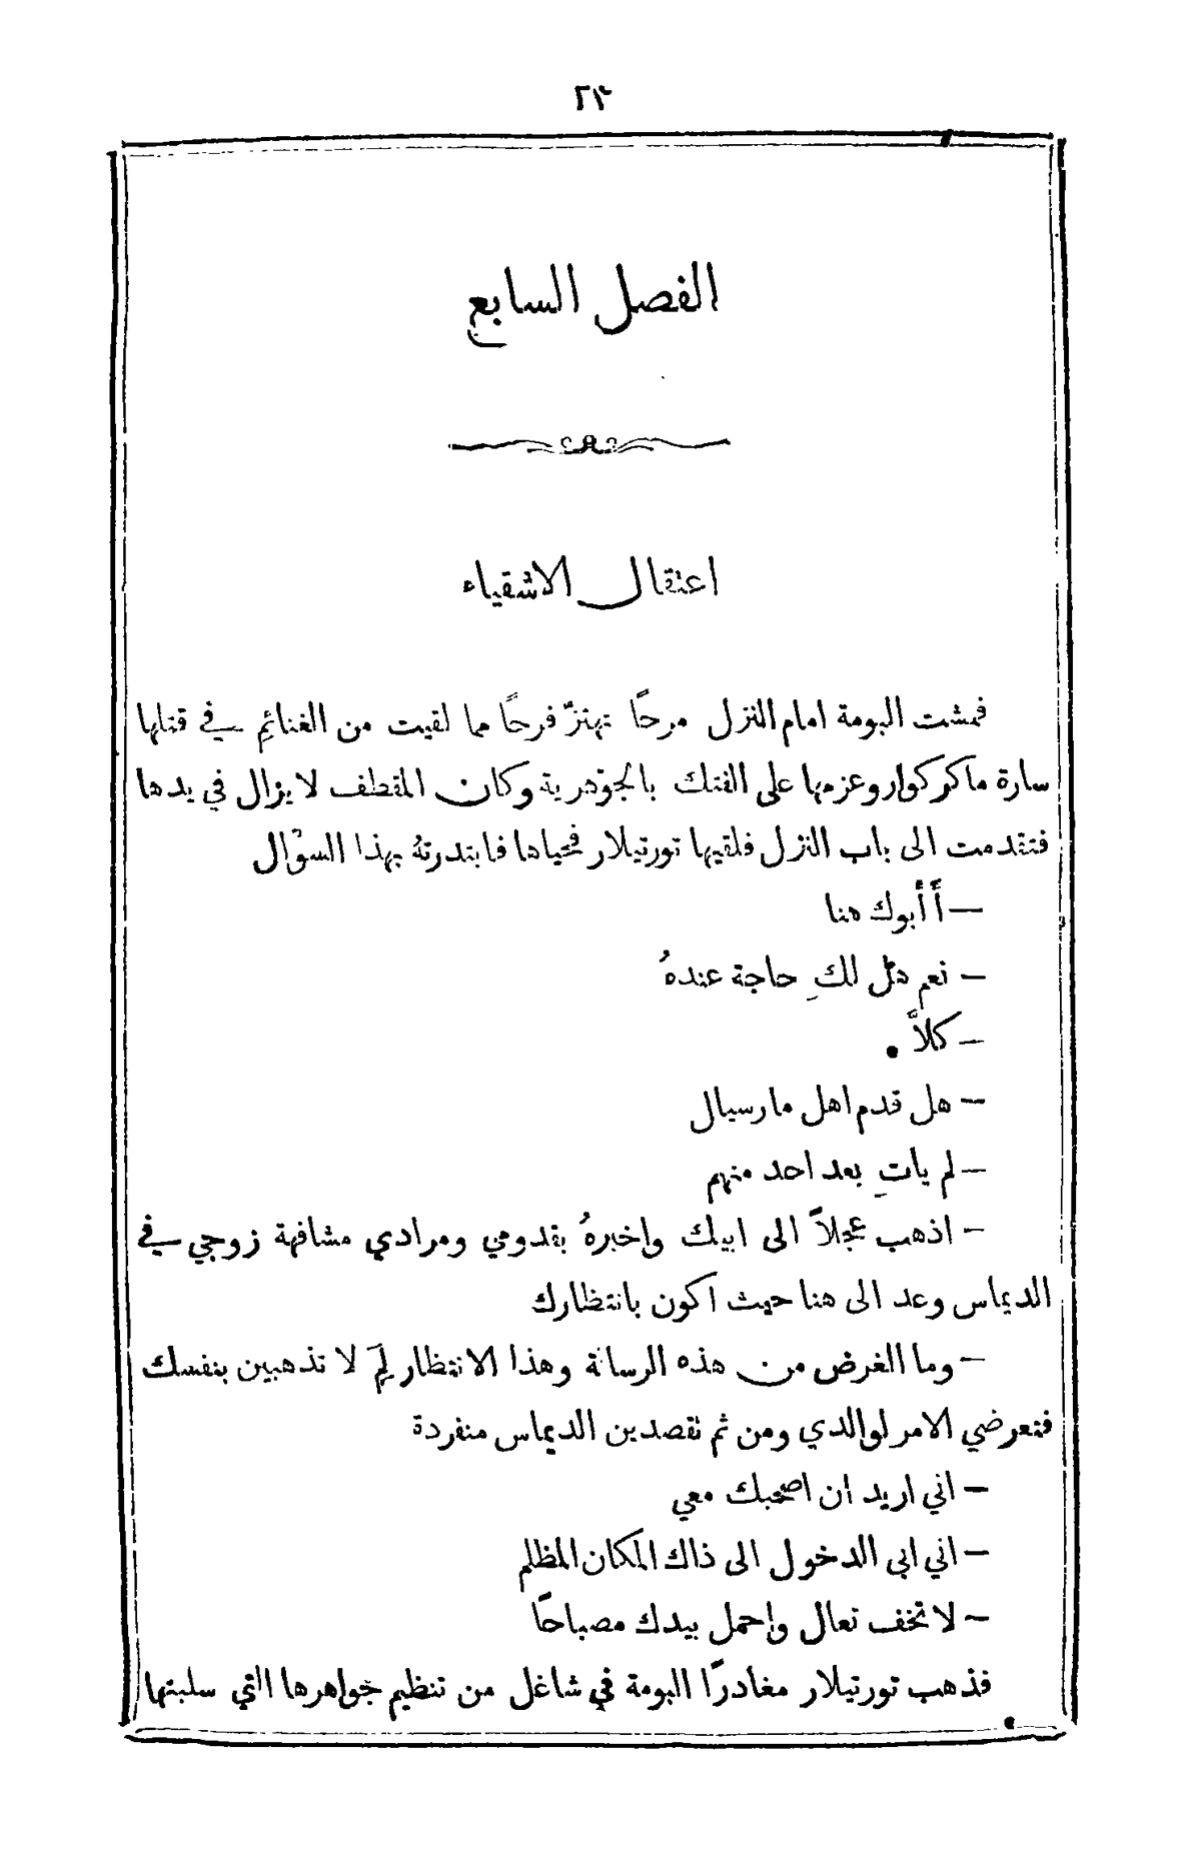 ٢٣
الفصل السابع
اعتقال الاشقياء
فمشت البومة امام النزل مرحًا تهتزّ فرحًا مما لقيت من الغنائمِ في قتلها
سارة ماكركوار وعزمها على الفتك بالجوهرية وكان المقطف لا يزال في يدها
فتقدمت الى باب النزل فلقيها تورتيلار فحياها فابتدرتهُ بهذا السؤال
— أَأَبوك هنا
— نعم هل لكِ حاجة عندهُ
— كلاَّ .
— هل قدم اهل مارسيال
— لم ياتِ بعد احد منهم
— اذهب عجلاً الى ابيك واخبرهُ بقدومي ومرادي مشافهة زوجي في
الديماس وعد الى هنا حيث اكون بانتظارك
— وما الغرض من هذه الرسالة وهذا الانتظار لِمَ لا تذهبين بنفسك
فتعرضي الامر لوالدي ومن ثم تقصدين الديماس منفردة
— اني اريد ان اصحبك معي
— اني ابى الدخول الى ذاك المكان المظلم
— لا تخف تعال واحمل بيدك مصباحًا
فذهب تورتيلار مغادرًا البومة في شاغل من تنظيم جواهرها التي سلبتها